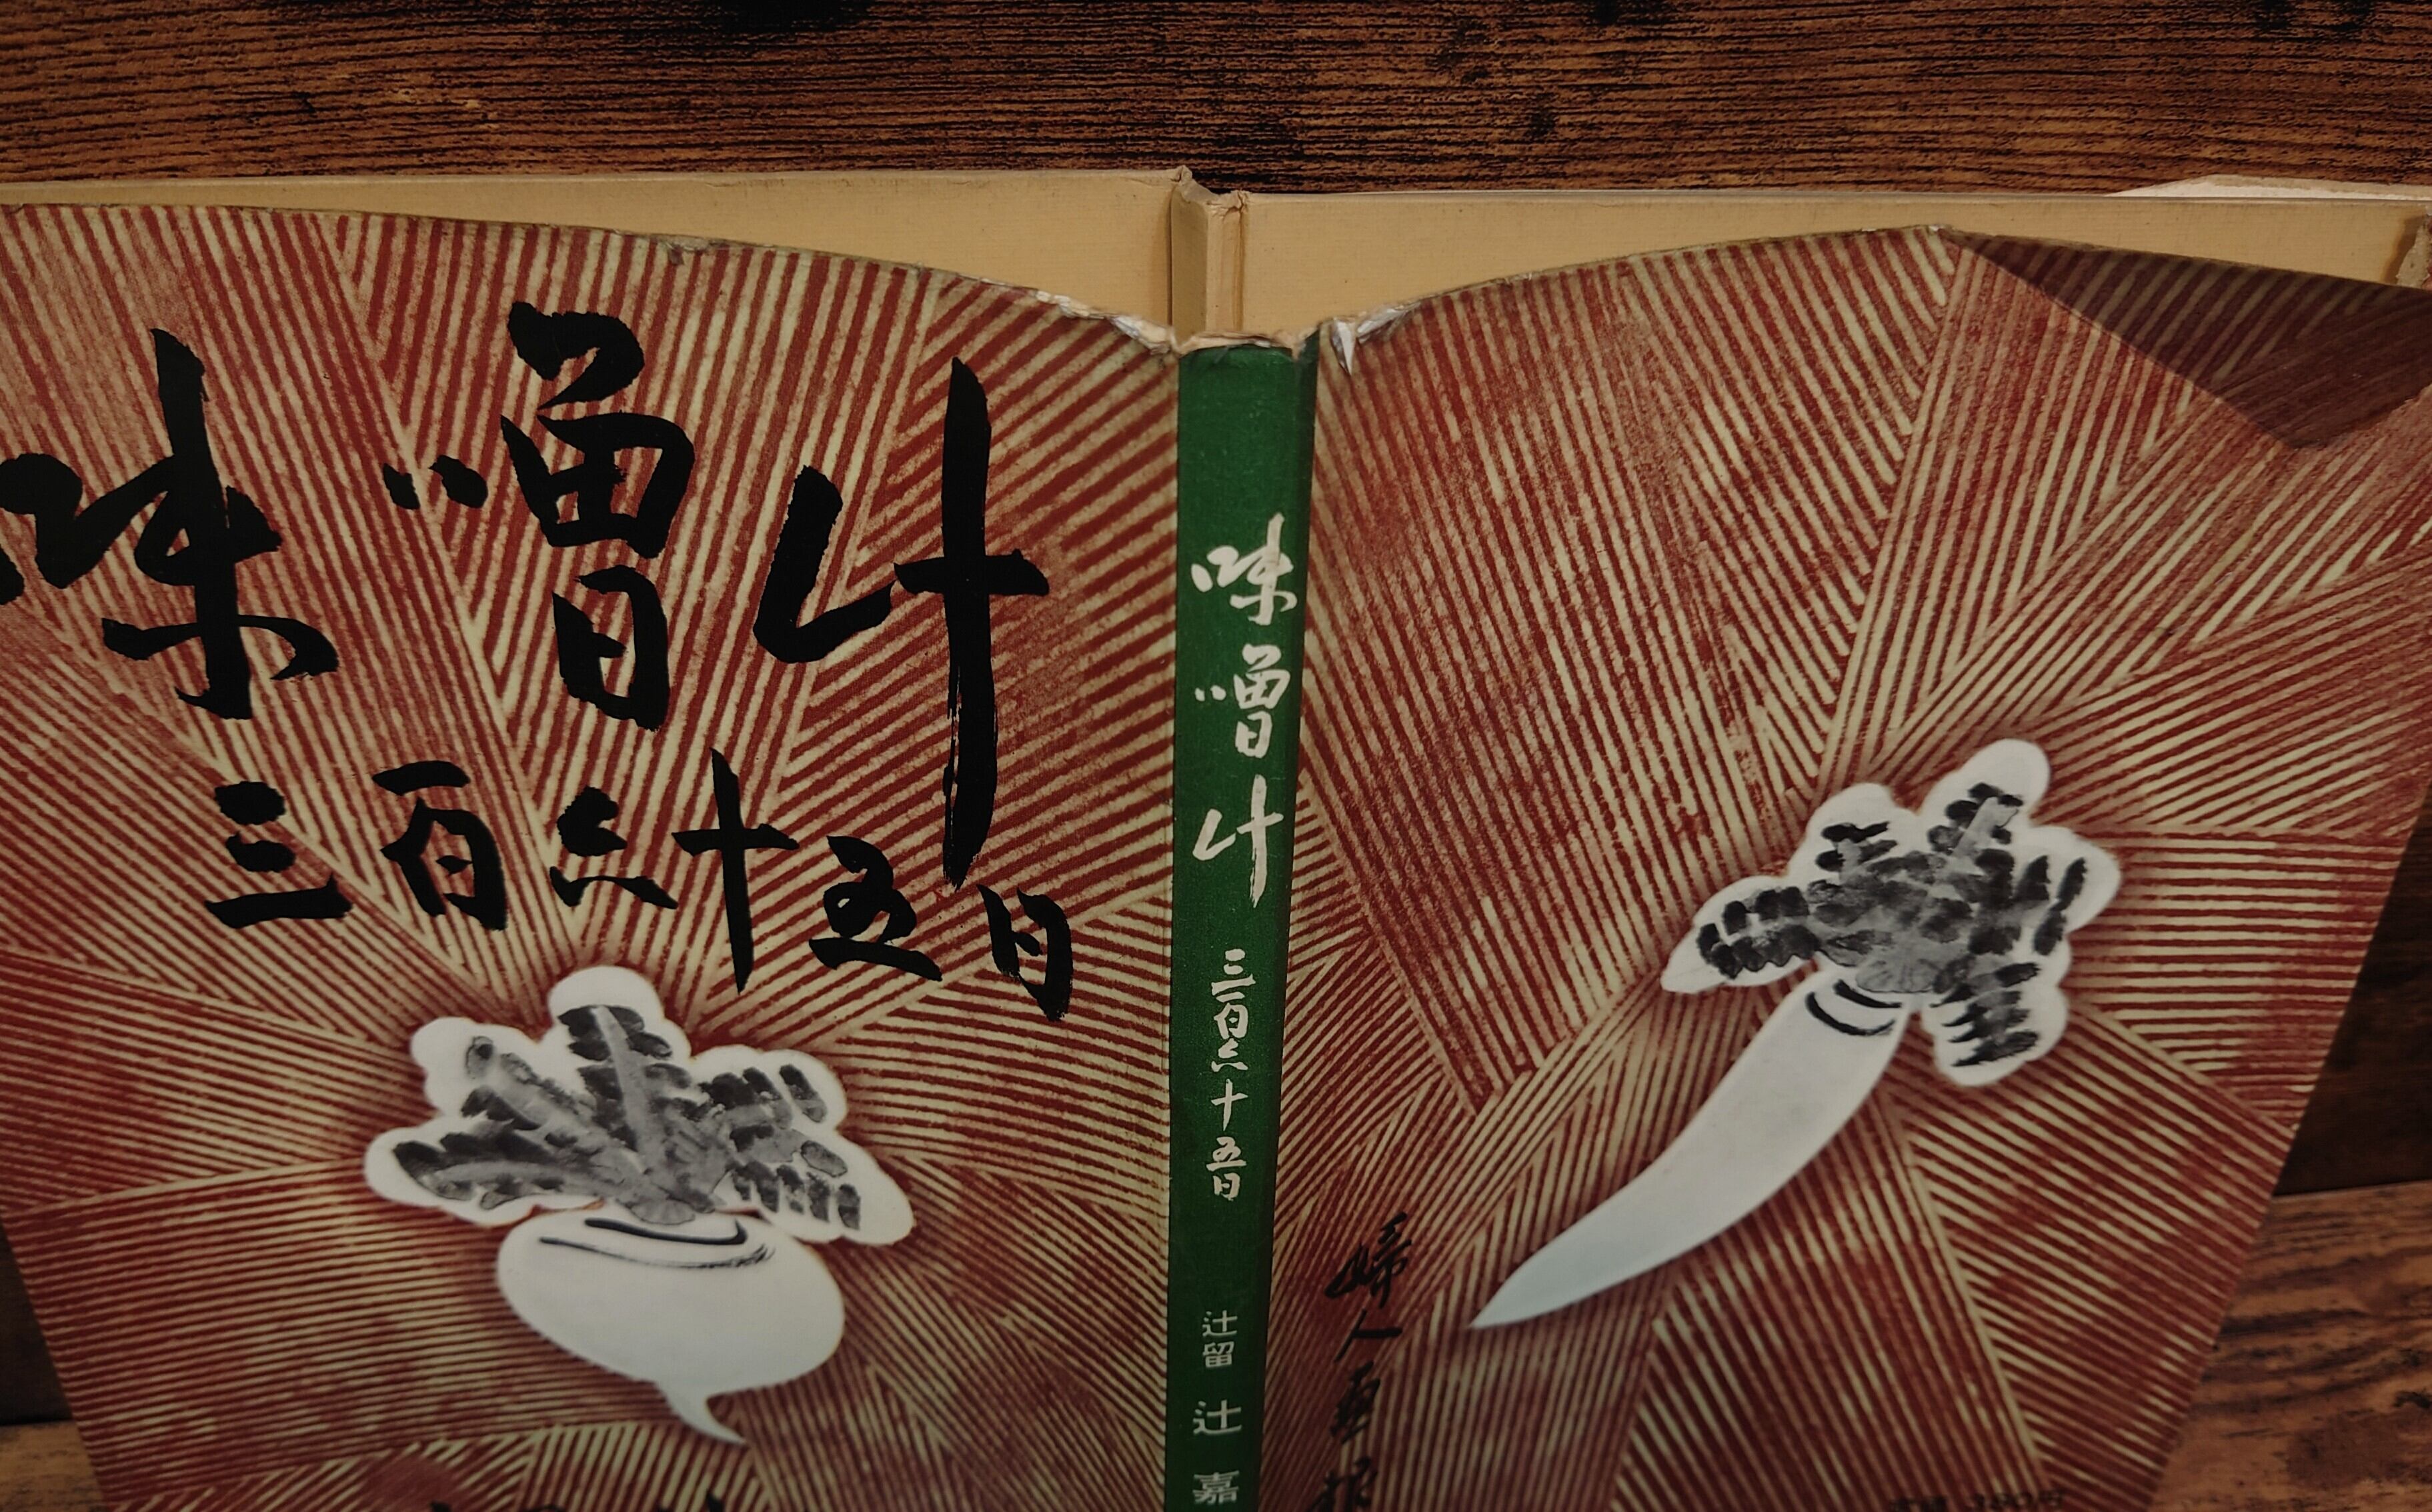 味噌汁
三百六十五日
味噌汁 三百六十五日 辻留 辻 嘉
婦人画報